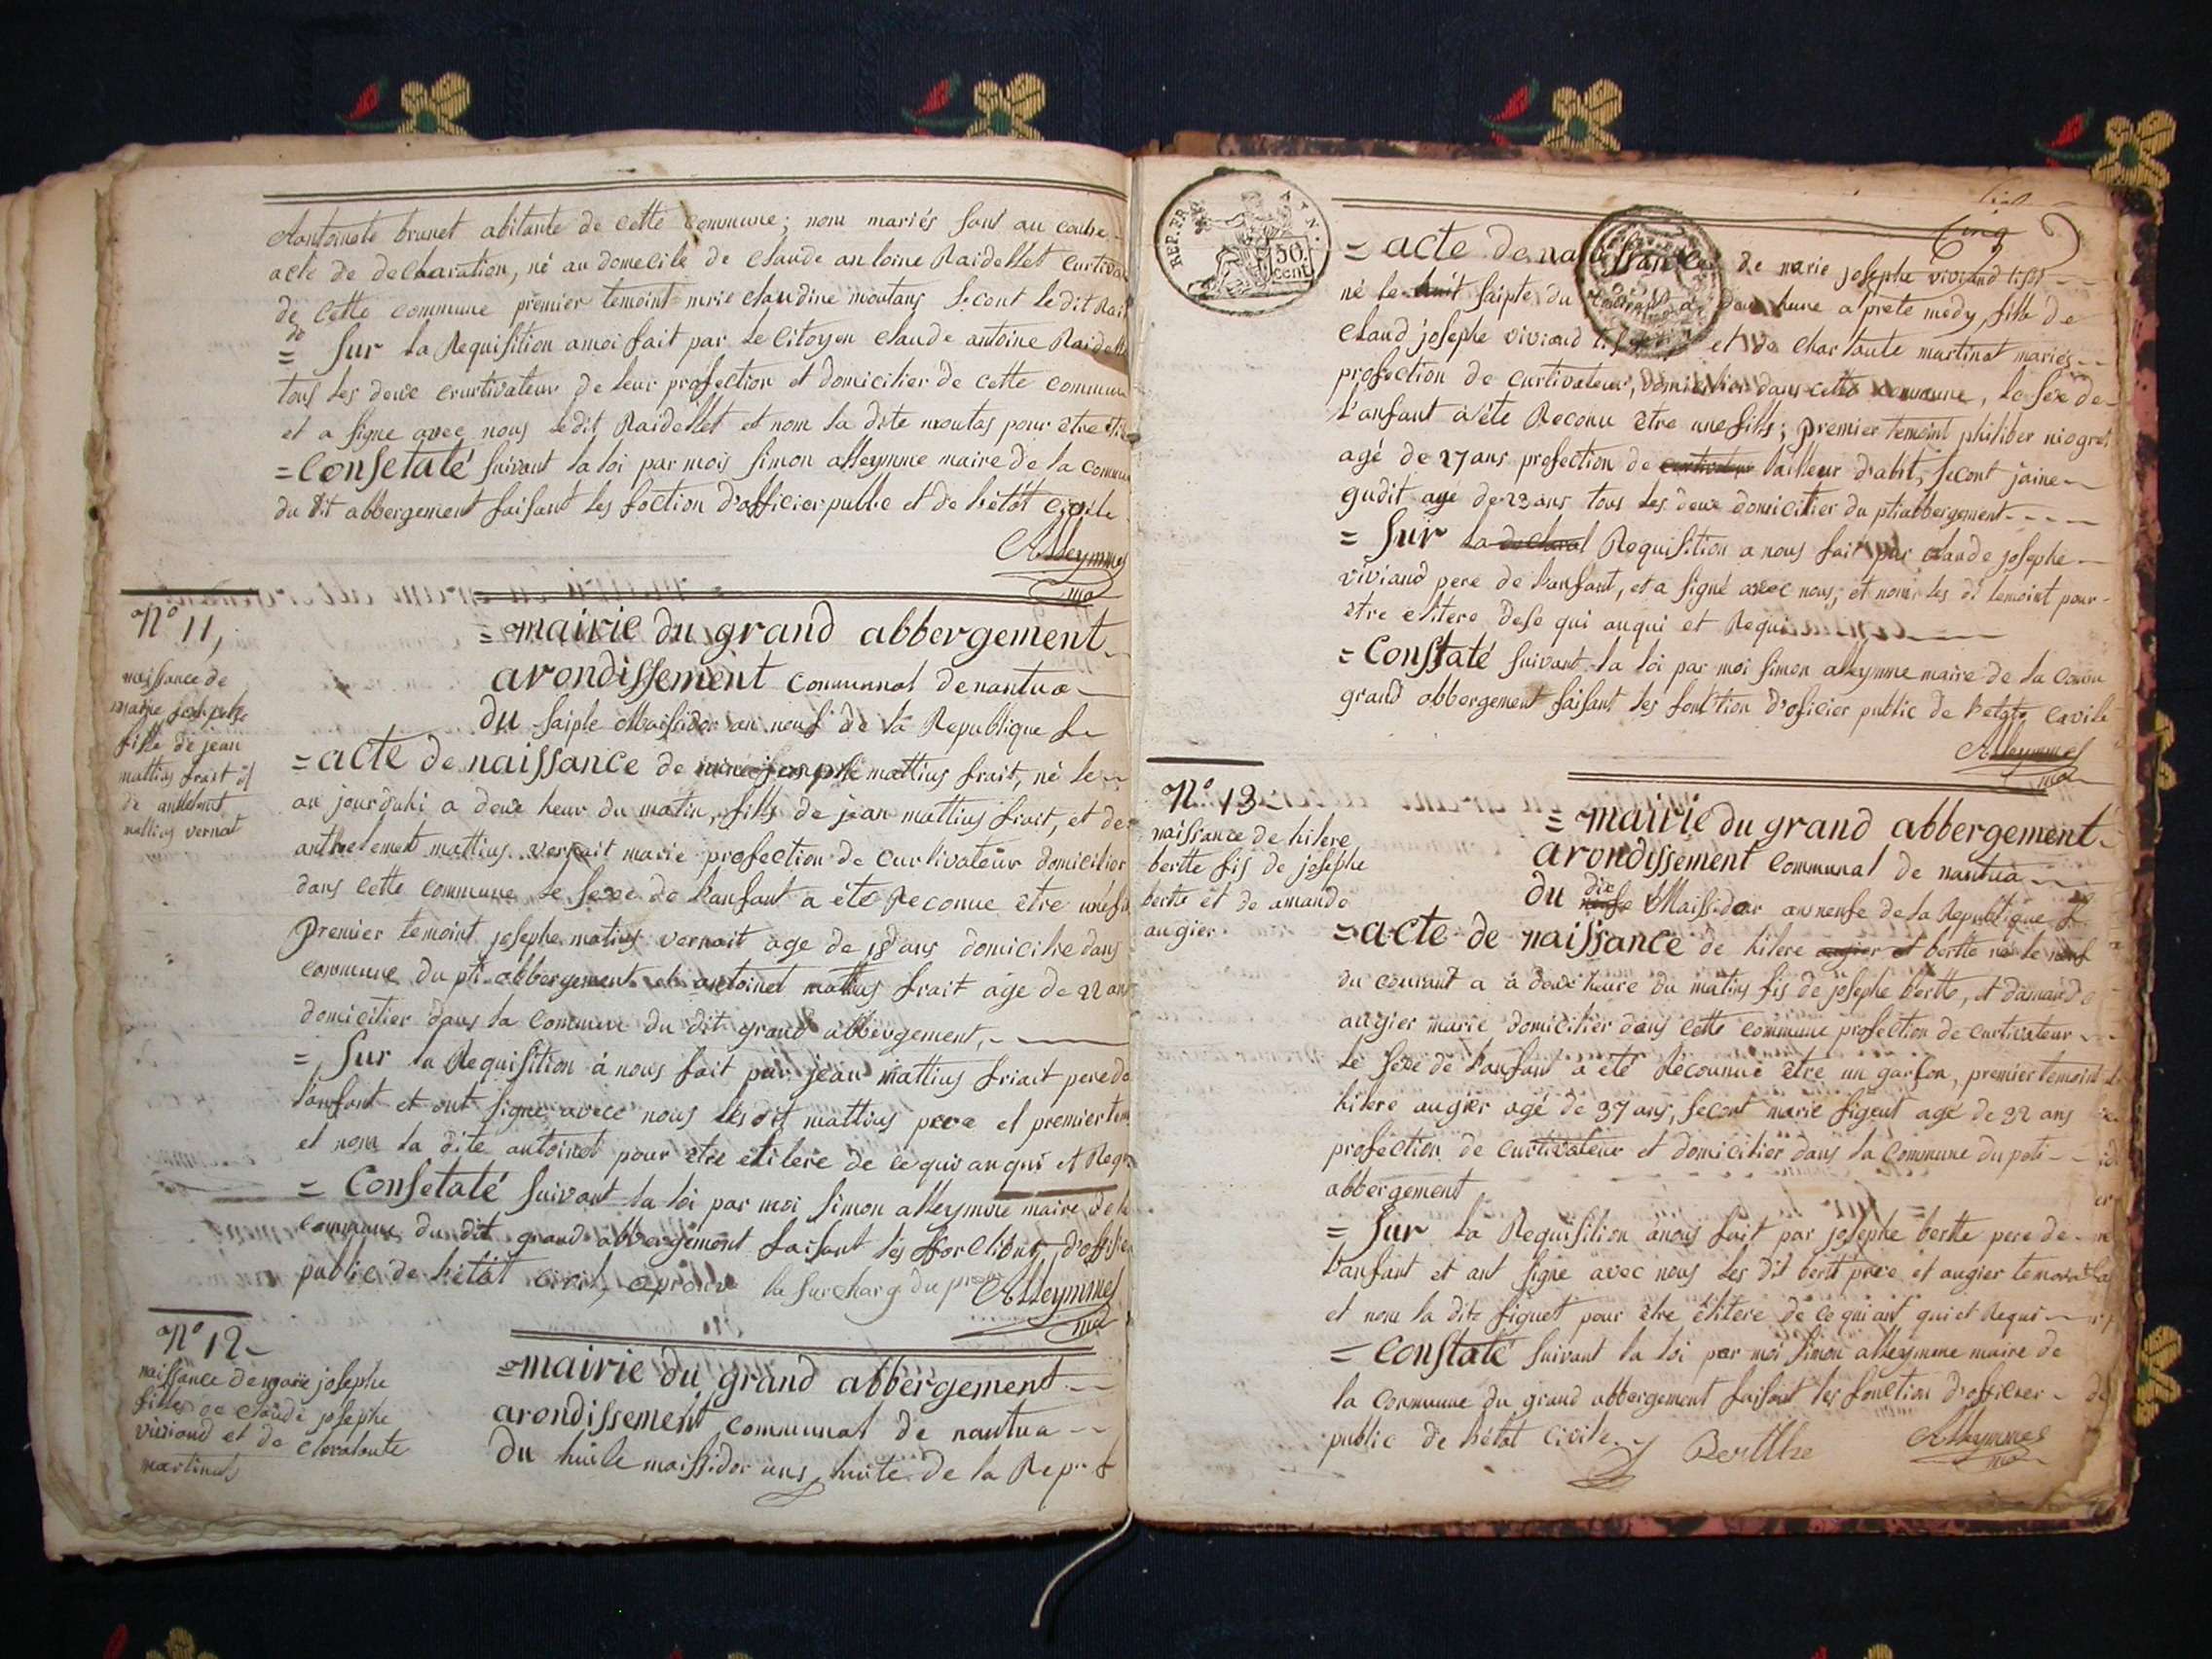 antoinete brunet abitante de cette commune; nom mariés
acte de declaration, né au domecile de claude antoine Raidellet
de cette commune premier temoint claudine moutans secont le dit
= Sur la Requisition amoi fait par le Citoyen claude antoine
tous les deux de leur profection et domicilier de cette
et a signe avec nous ledit Raidellet et nom la dite moutas pour être
= Consetaté suivant la loi par mois simon alleymme maire de la
du dit abbergement faisant les foction d'officier public et de l'étót civile
Alleymmes
ma
N° 11,
naissance de
marie josephe
fille de jean
mattius frait et
de
mattius vernat
= mairie du grand abbergement
arondissement communal de nantua
du saipte Maissidor an neuf de la Republique
= acte de naissance de mattius frait, né le
au jourduhi a deux heur du matin, fills de jean mattius frait, et de
mattius vernait marie profection de curtivateur domicilier
dans cette commune le sexe de l'anfant a éte Reconue être
Premier temoint josephe matius vernait age de 18 ans domicilie dans
commune du pti abbergement antoinet mattius frait age de 22 ans
domicilier dans la commune du dit grand abbergement,
= Sur la Requisition à nous fait par jean mattius frait pere de
l'anfant et ont signe avec nous les dit mattius pere et premier
et nom la dite antoinet pour être elitere de ce qui anqui et
= Consetaté suivant la loi par moi simon alleymme maire de la
commune du dit grand abbergement faisant les
public de l'étót civil, aprouve la surcharg du
Alleymmes
ma
N° 12
naissance de marie josephe
fille de claude josephe
viviand et de
martinat
= mairie du grand abbergement
arondissement communal de nantua
du huite maissidor ans huite de la
Cinq
= acte de naissance de marie josephe viviand
né le saipte du a deux heure aprete medy, fille de
claud josephe viviand et de martinat mariés
profection de curtivateur, domicilier dans cette commune, le sexe de
l'anfant a éte Reconu être une fills; premier temoint philiber
agé de 27 ans profection de tailleur d'abit, secont jaine
gudit age de 23 ans tous les deux domicilier du pti abbergement
= Sur la Requisition a nous fait par claude josephe
viviand pere de l'anfant, et a signé avec nous, et nom les di temoint pour
être elitere dese qui anqui et Requi
= Constaté suivant la loi par moi simon alleymme maire de la
grand abbergement faisant les fonction d'oficier public de l'etate cavile
Alleymmes
ma
REP. FRA.
50
cent
N° 13
naissance de hilere
bertte fis de josephe
bertte et de amande
augier
= mairie du grand abbergement
arondissement communal de nantua
du dix Maissidor an neufe de la Republique
= acte de naissance de hilere augier et bertte né le neuf
du courant a à deux heure du matins fis de josephe bertte, et damande
augier marie domicilier dans cette commune profection de curtivateur
le sexe de l'anfant a été Reconnue être un garson, premier temoint
hilere augier agé de 37 ans, secont marie sigeut age de 32 ans
profection de curtivateur et domicilier dans la commune du peti
abbergement
= Sur la Requisition a nous fait par josephe bertte pere de
l'anfant et ant signe avec nous les dit bertt pere et augier temoint
et nom la dite siguet pour être elitere de ce qui ant qui et Requi
= Constaté suivant la loi par moi simon alleymme maire de
la commune du grand abbergement faisant les fonction d'officier
public de l'étot civile.
Bertthe
Alleymmes
ma